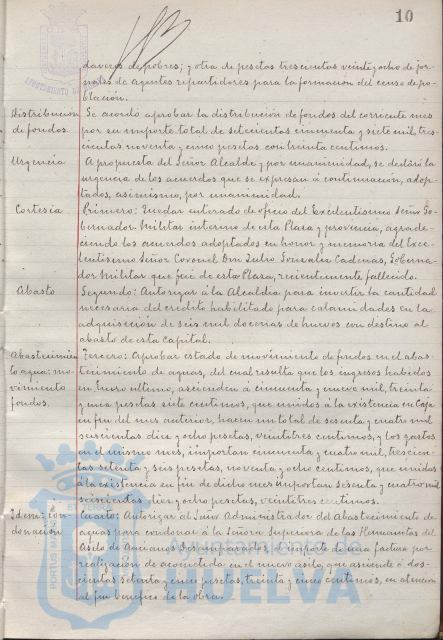 10
AYUNTAMIENTO DE
dáveres de pobres; y otra de pesetas trescientas veinte y ocho de jor-
nales de agentes repartidores para la formacion del censo de po-
blación.
Distribución Se acordó aprobar la distribución de fondos del corriente mes
de fondos. por su importe total de setecientas cincuenta y siete mil, tres-
cientas noventa y cinco pesetas con treinta centimos.
Urgencia A propuesta del Señor Alcalde y por unanimidad, se declaró la
urgencia de los acuerdos que se expresan á continuación, adop-
tados, asimismo, por unanimidad.
Cortesia Primero: Quedar enterado de oficio del Excelentisimo Señor Go-
bernador Militar interino de esta Plaza y provincia, agrade-
ciendo los acuerdos adoptados en honor y memoria del Exce-
lentisimo Señor Coronel Don Julio Gonzalez Cadenas, Goberna-
dor Militar que fué de esta Plaza, recientemente fallecido.
Abasto Segundo: Autorizar á la Alcaldia para invertir la cantidad
necesaria del credito habilitado para calamidades en la
adquisición de seis mil docenas de huevos con destino al
abasto de esta Capital.
Abastecimien- Tercero: Aprobar estado de movimiento de fondos en el abas-
to agua: mo- tecimiento de aguas, del cual resulta que los ingresos habidos
vimiento en Enero ultimo, ascienden á cincuenta y nueve mil, treinta
fondos. y una pesetas siete centimos, que unidos á la existencia en Caja
en fin del mes anterior, hacen un total de sesenta y cuatro mil
seiscientas diez y ocho pesetas, veintitres centimos, y los gastos
en el mismo mes, importan cincuenta y cuatro mil, trescien-
tas setenta y seis pesetas, noventa y ocho centimos, que unidos
á la existencia en fin de dicho mes importan sesenta y cuatro mil
seiscientas diez y ocho pesetas, veintitres centimos.
Idem: con- Cuarto: Autorizar al Señor Administrador del Abastecimiento de
donación aguas para condonar á la Señora Superiora de las Hermanitas del
Asilo de Ancianos Desamparados, el importe de una factura por
realización de acometida en el nuevo asilo, que asciende á dos-
cientas setenta y cinco pesetas, treinta y cinco centimos, en atención
al fin benefico de la obra.
PORTUS MARIS
Ayuntamiento de
HUELVA